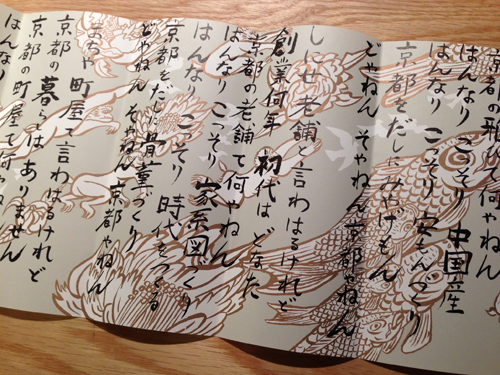 京都の雅
はんなり こっそり 中国産
はんなり こっそり 安もんづくり
京都をだしにみやげもん
どやねん そやねん 京都やねん
しにせ 老舗と言わはるけれど
創業何年 初代は どなた
京都の老舗て何やねん
はんなり こっそり 家系図づくり
はんなり こっそり 時代をつくる
京都をだしに骨董づくり
どやねん そやねん 京都やねん
まちや 町屋て言わはるけれど
京都の暮らしはありません
京都の町屋て何
はんなり